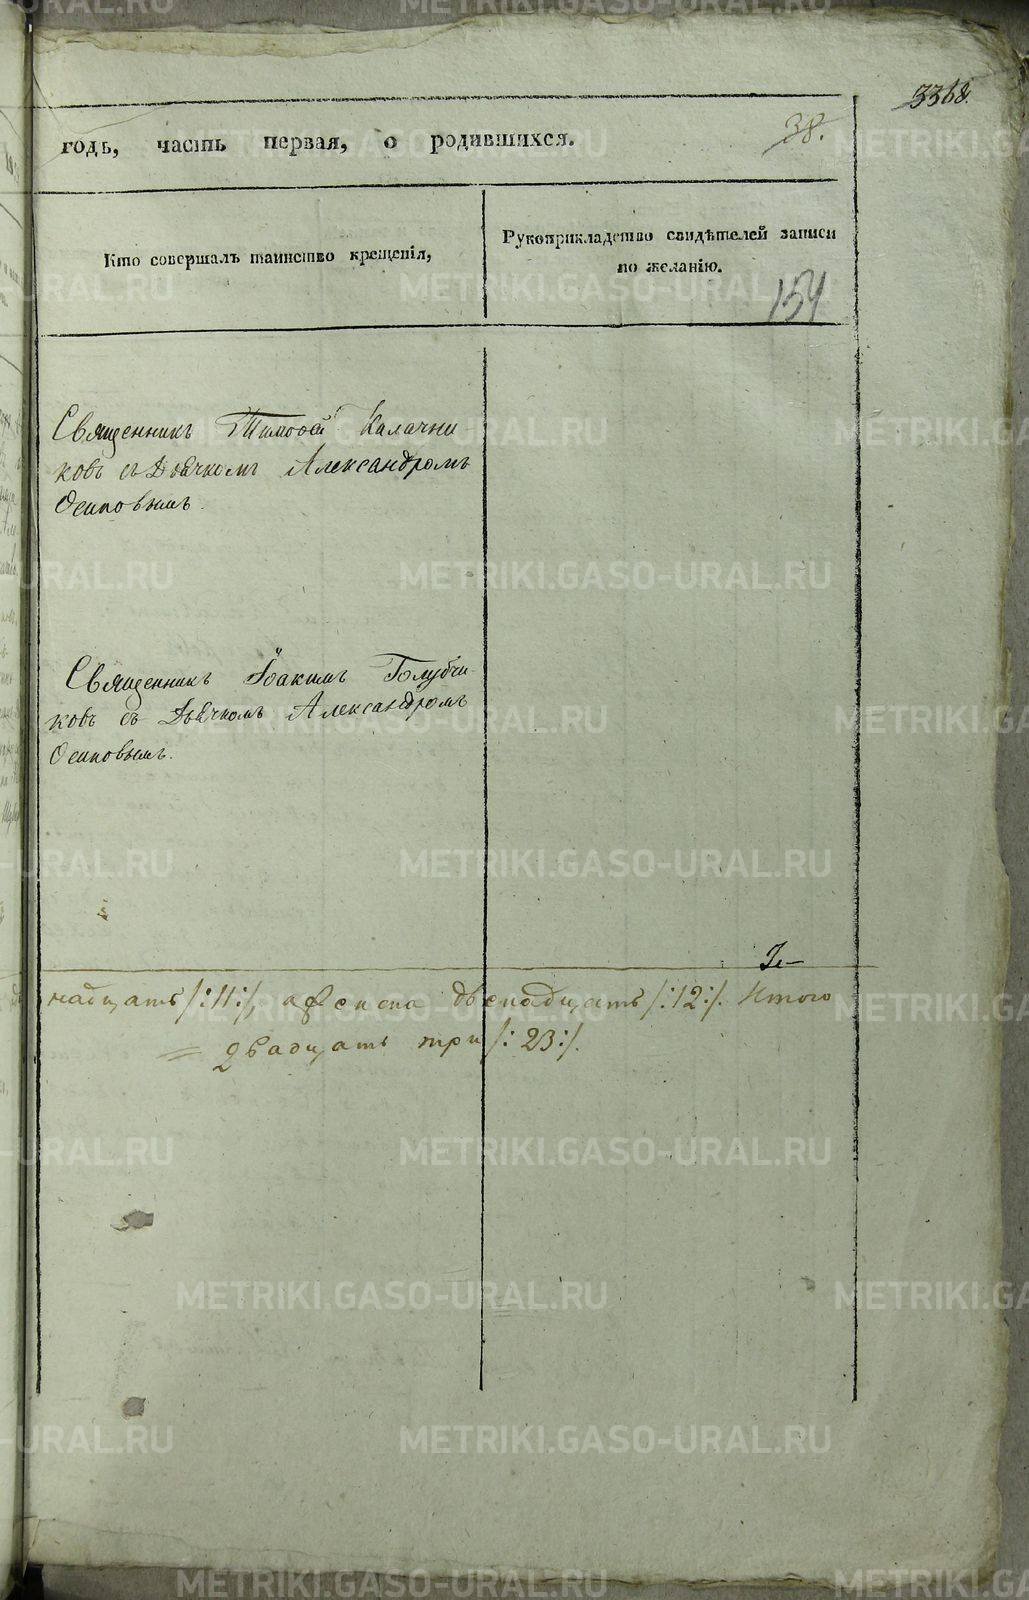 3368.
38.
годъ, часть первая, о родившихся.
Кто совершалъ таинство крещенія,
Рукоприкладство свидѣтелей записи
по желанію.
154
Священникъ Тимоѳей Калачни-
ковъ съ Дьячкомъ Александромъ
Осиповымъ.
Священникъ Іоакимъ Голубчи-
ковъ съ Дьячкомъ Александромъ
Осиповымъ.
надцать /:11:/, а женска двенадцать /:12:/. Итого
= двадцать три /:23:/.
METRIKI.GASO-URAL.RU